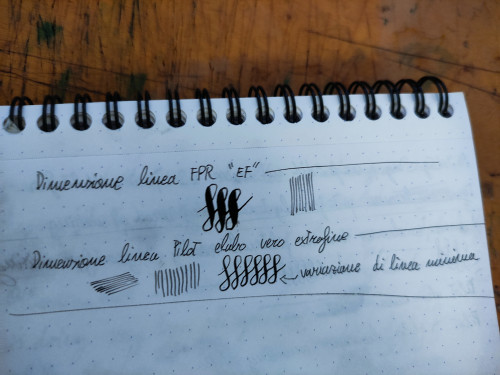 Dimensione linea FPR "EF"
Dimensione linea Pilot elabo vero extrafine
variazione di linea minima